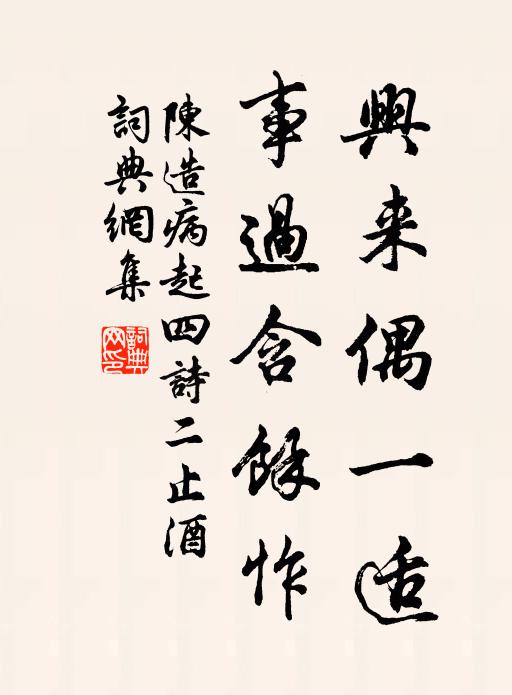 興来偶一适
事過含餘怍
陳造病起四詩二止酒
詞典網集
詞典網印